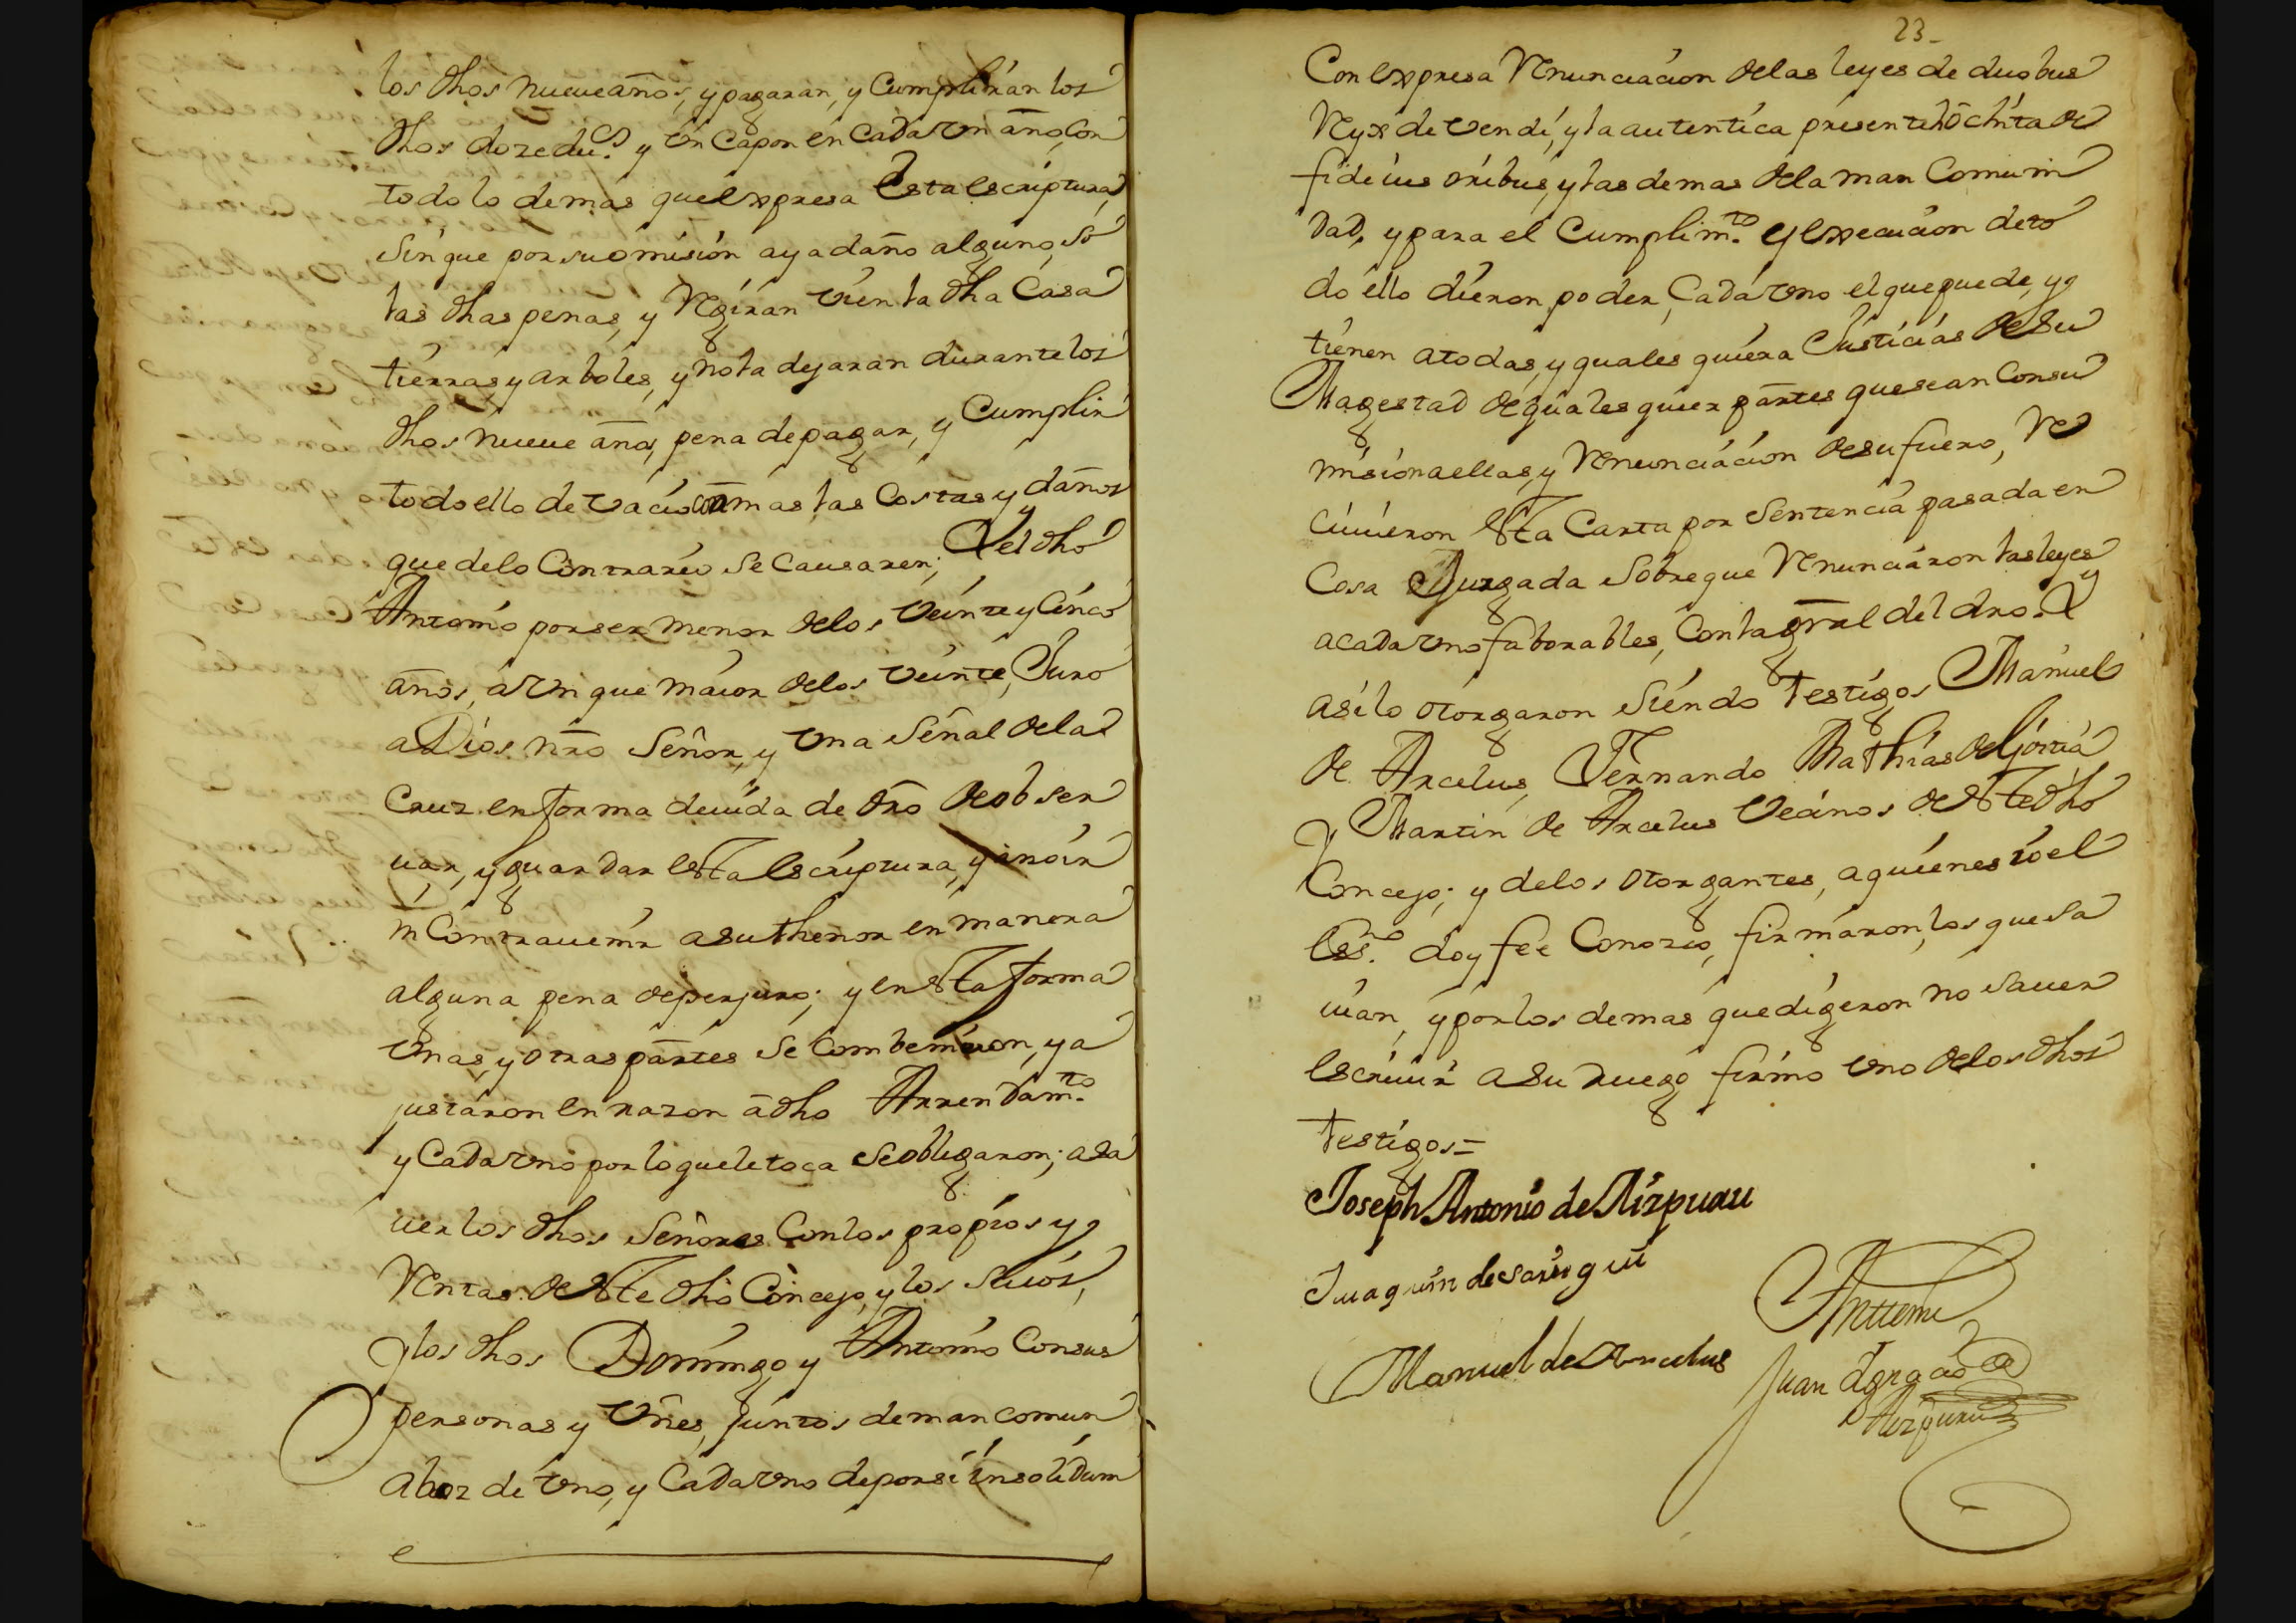 los dhos nueue años, y pagaran, y Cumpliran los
dhos doze du.s y Vn Capon en Cada Vn año, Con
todo lo demas que expresa Esta escriptura,
sin que por su omision aya daño alguno, so
las dhas penas, y Regiran Vien la dha Casa
tierras, y arboles, y no la dejaran durante los
dhos nueue años, pena de pagar, y Cumplir
todo ello de Vacio con mas las Costas y daños
que de lo Contrario se Causaren; Y el dho
Antonio por ser menor de los Veinte y Cinco
años, a Vn que maior de los Veinte, Juro
a Dios nro Señor, y Vna Señal de la
Cruz en forma deuida de dro de obser
uar, y guardar esta escriptura, y no ir
ni Contrauenir a su thenor en manera
alguna pena de perjuro; y en esta forma
Vnas, y otras partes se Combenieron, y a
justaron en razon a dho Arrendam.to
y Cada Vno por lo que le toca se obligaron; a sa
uer los dhos Señores Con los propios y
Rentas de este dho Concejo, y los suios,
y los dhos Domingo y Antonio Con sus
personas y Vnes, juntos de man comun
a boz de Vno, y Cada Vno de por si insolidum
23
Con expresa Renunciacion de las leyes de duobus
Rex de Vendi, y la autentica presente hoc hita de
fide ius oribus, y las demas de la man Comuni
dad, y para el Cumplim.to y execucion de to
do ello dieron poder, Cada Vno el que puede, y
tienen a todas, y quales quiera Justicias de su
Magestad de quales quier partes que sean Con su
mision a ellas, y Renunciacion de su fuero, Re
ciuieron esta Carta por Sentencia pasada en
Cosa Juzgada sobre que Renunciaron las leyes
a Cada Vno faborables, Con la gral del dro. Y
asi lo otorgaron siendo testigos Manuel
de Arcelus, Fernando Mathias de Gorria
y Martin de Arcelus Vecinos de este dho
Concejo; y de los otorgantes, a quienes io el
ess.no doy fee Conozco, firmaron, los que sa
uian, y por los demas que digeron no sauer
escriuir a su ruego firmo Vno de los dhos
testigos=
Joseph Antonio de Aizpuru
Juaquin de
Manuel de Arcelus
Antte mi
Juan de
Aizpuru